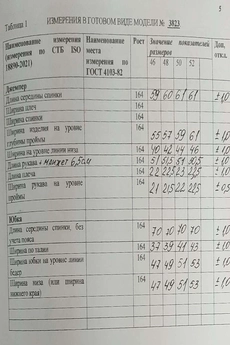 5
Таблица 1
ИЗМЕРЕНИЯ В ГОТОВОМ ВИДЕ МОДЕЛИ № 3823
Наименование измерения (измерения по СТБ ISO 18890-2021) Наименование места измерения по ГОСТ 4103-82 Рост Значение показателей Доп. откл.
46 48 50 52
Джемпер
Длина середины спинки 164 59 60 61 61 ±1,0
Ширина плеч 164
Ширина спинки 164
Ширина изделия на уровне глубины проймы 164 55 57 59 61 ±1,0
Ширина на уровне линии низа 164 40 42 44 46 ±1,0
Длина рукава + манжет 6,5см 164 51 51,5 51 ±1,0
Длина плеча 164 22 22,5 23 22,5 ±1,0
Ширина рукава на уровне проймы 164 21 21,5 22 22,5 ±0,5
Юбка
Длина середины спинки, без учета пояса 164 70 70 70 70 ±1,0
Ширина по талии 164 37 39 41 43 ±1,0
Ширина юбки на уровне линии бедер 164 47 49 51 53 ±1,0
Ширина низа (или ширина нижнего края) 164 47 49 51 53 ±1,0